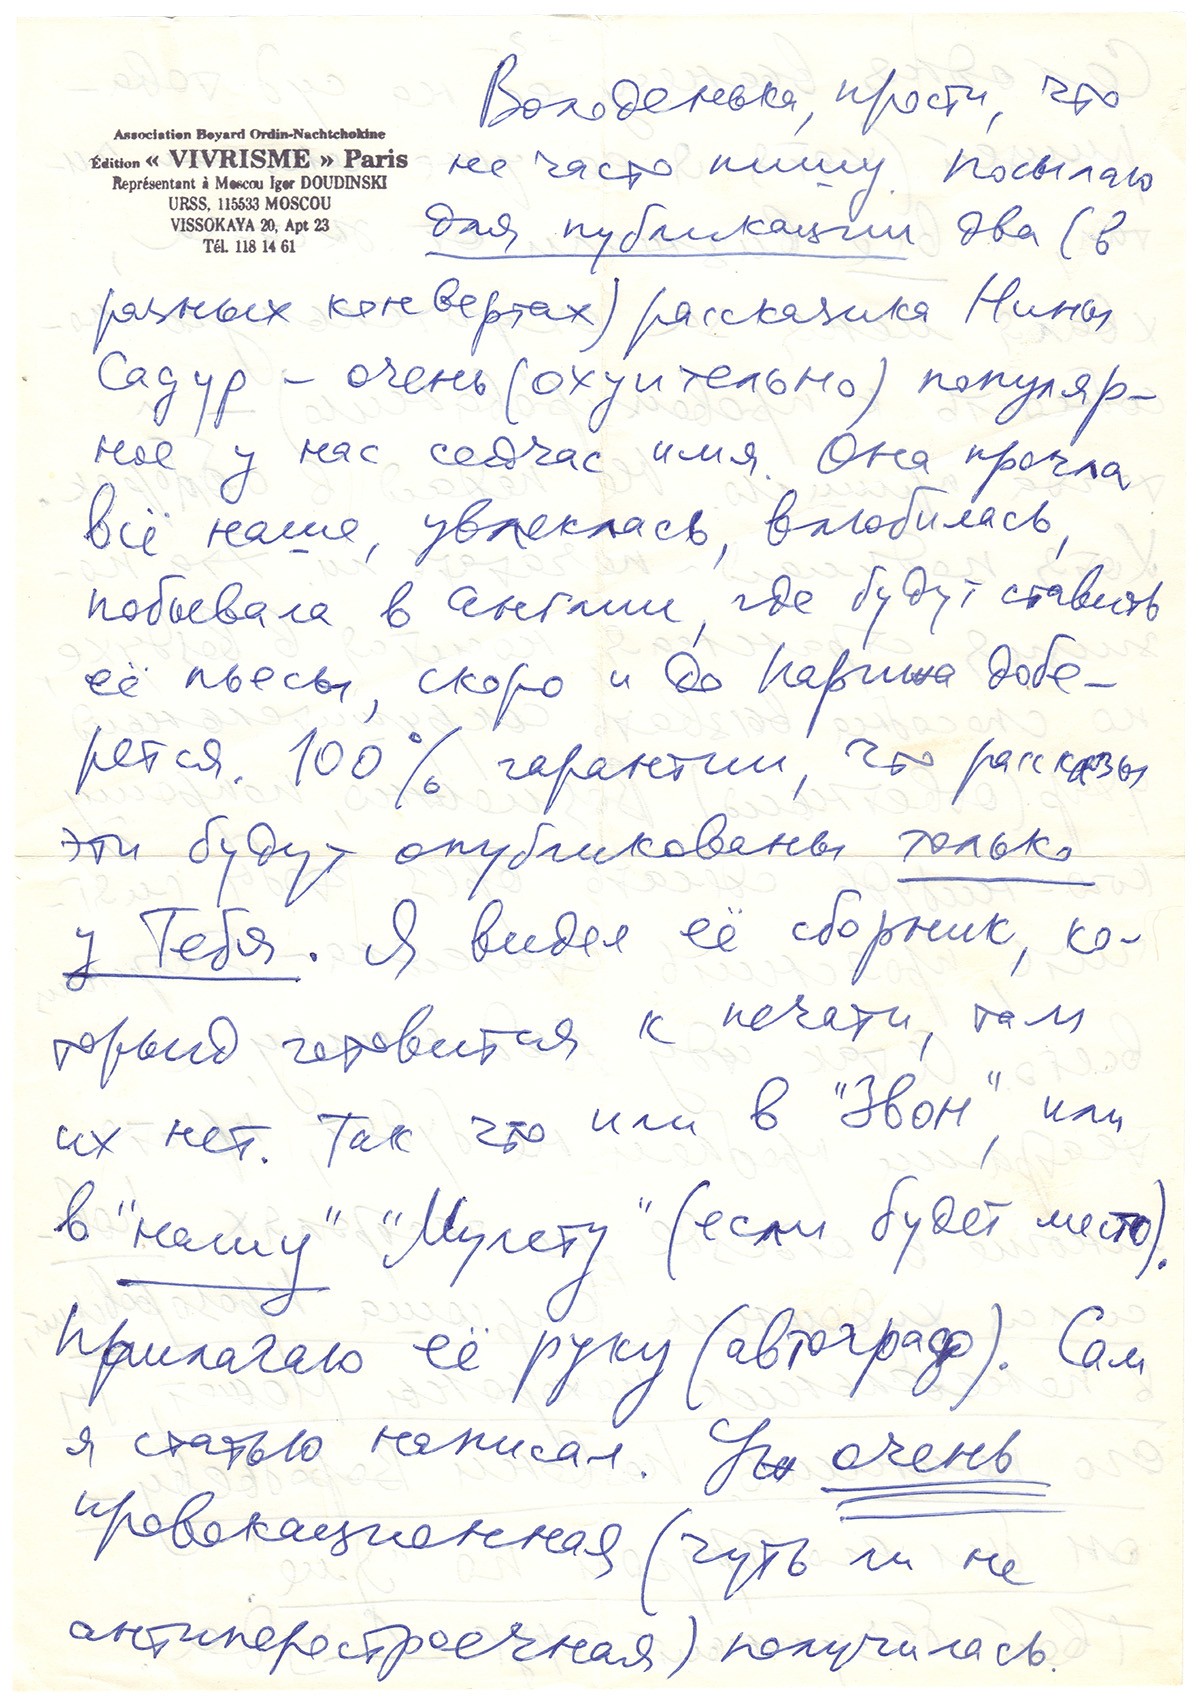 Association Boyard Ordin-Nachtchokine
Édition « VIVRISME » Paris
Représentant à Moscou Igor DOUDINSKI
URSS, 115533 MOSCOU
VISSOKAYA 20, Apt 23
Tél. 118 14 61
Володенька, прости, что
не часто пишу. Посылаю
для публикации два (в
разных конвертах) рассказика Нины
Садур – очень (охуительно) популяр-
ное у нас сейчас имя. Она прочла
всё наше, увлеклась, влюбилась,
побывала в Англии, где будут ставить
её пьесы, скоро и до Парижа добе-
рется. 100% гарантии, что рассказы
эти будут опубликованы только
у Тебя. Я видел её сборник, ко-
торый готовится к печати, там
их нет. Так что или в "Звон", или
в "нашу" "Мулету" (если будет место).
Прилагаю её руку (автограф). Сам
я статью написал. очень
провокационная (чуть ли не
антиперестроечная) получилась.